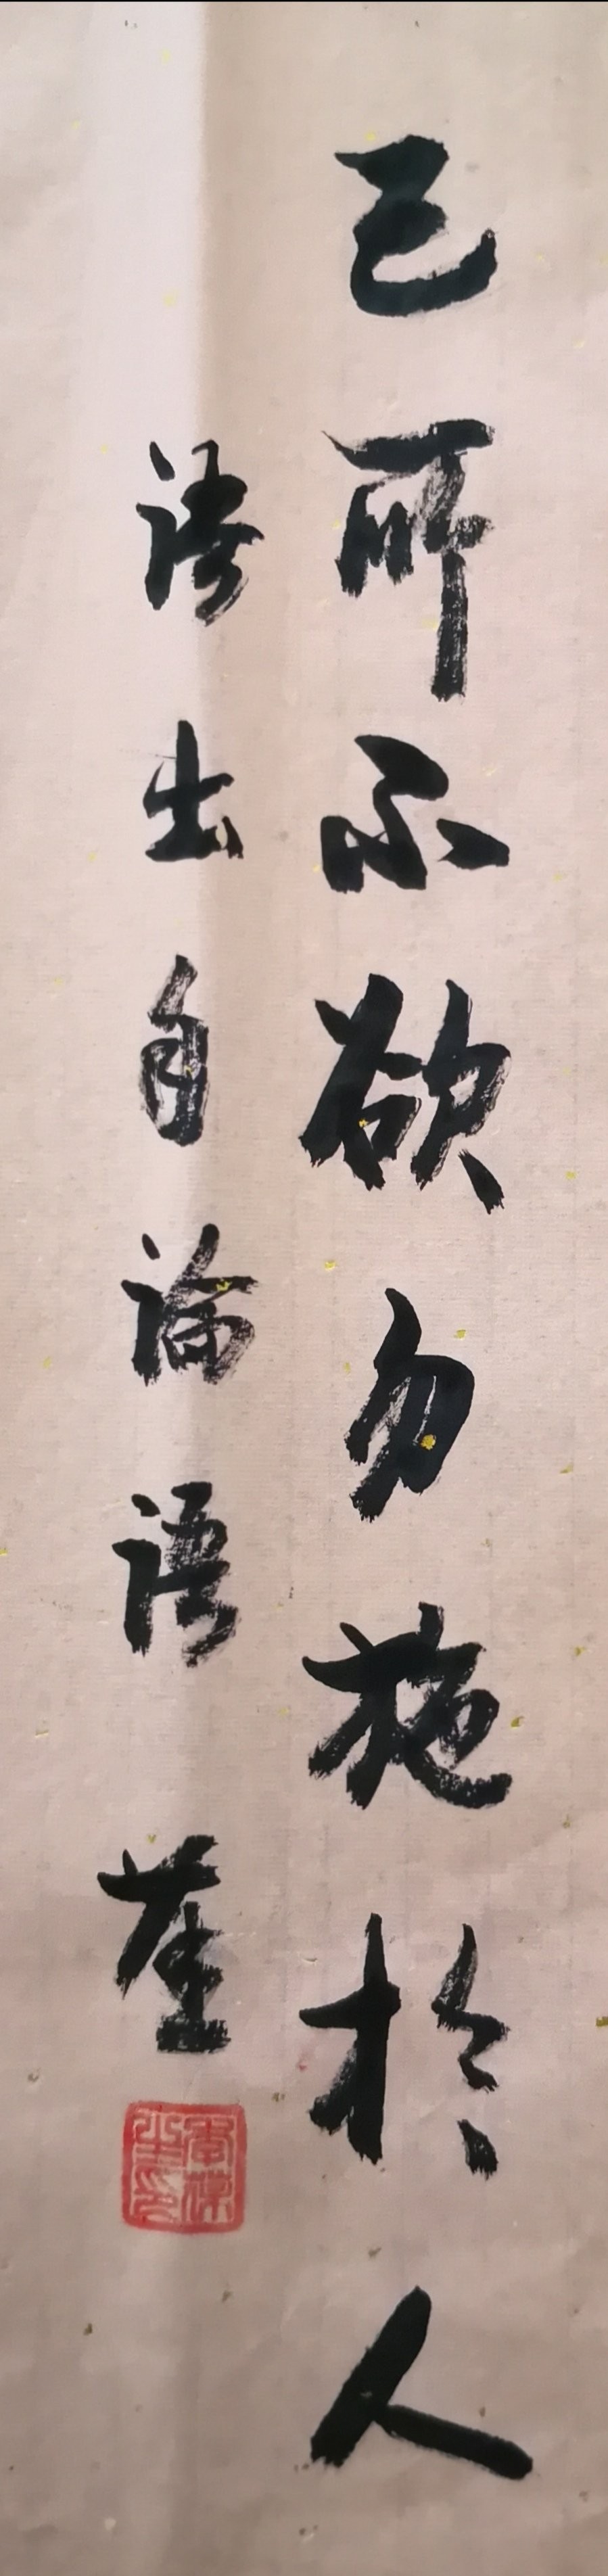 己所不欲勿施於人
語出自論語